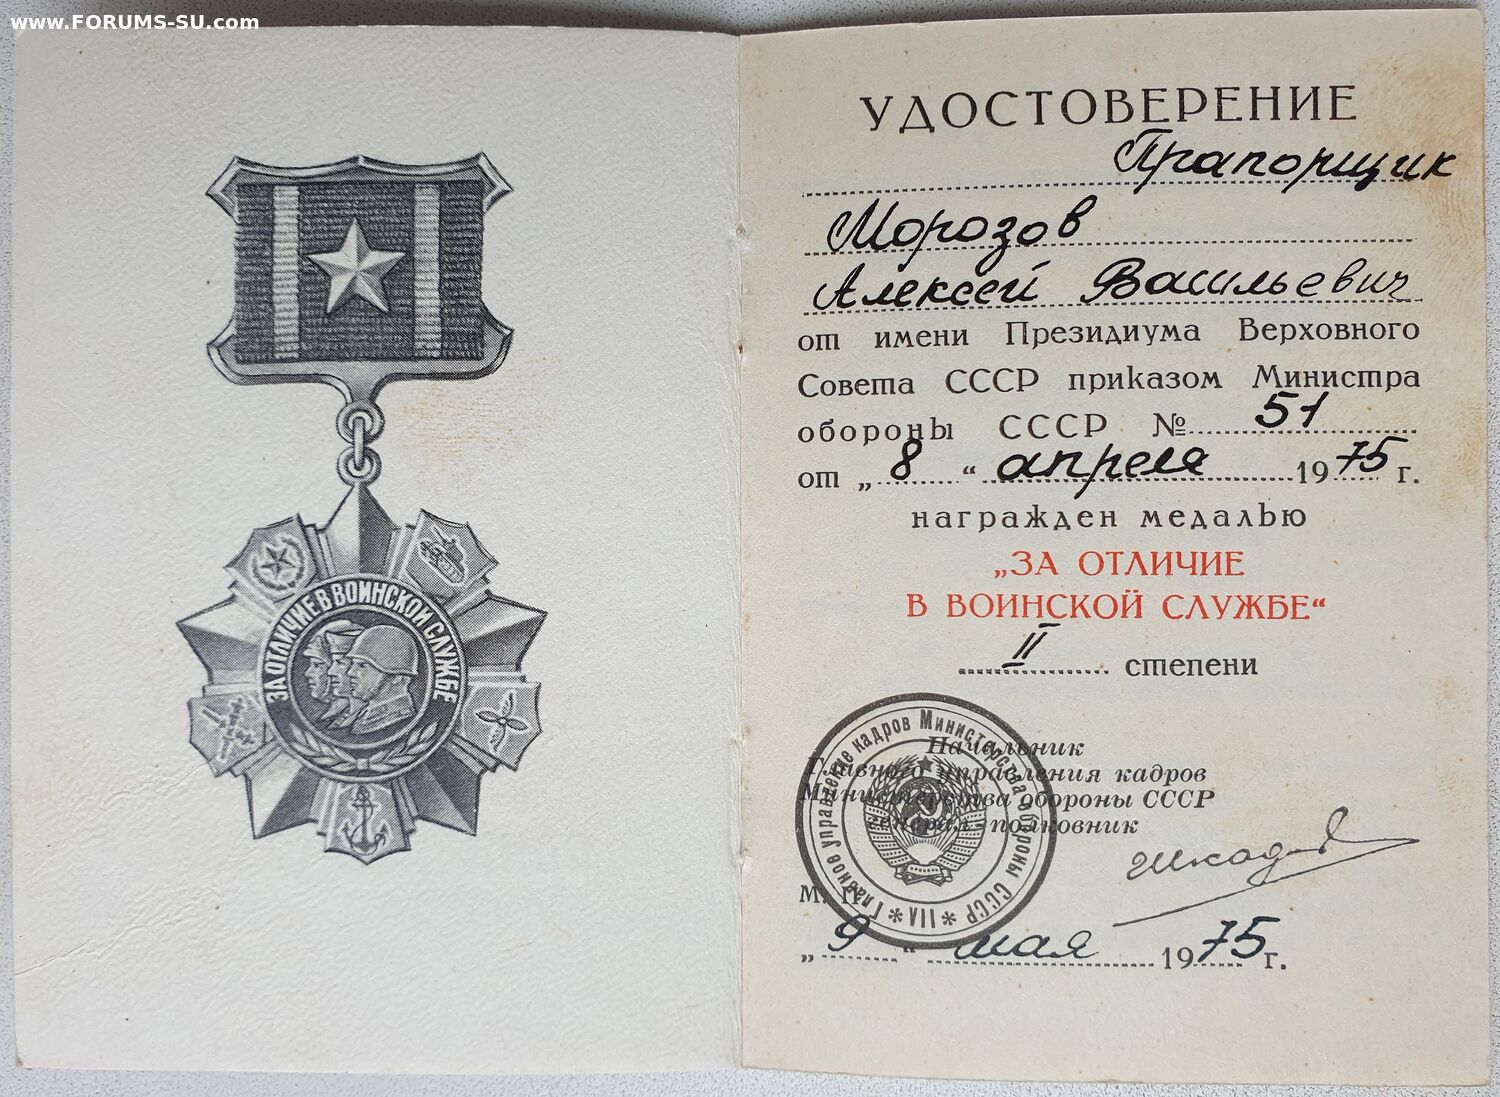 www.FORUMS-SU.com
ЗА ОТЛИЧИЕ В ВОИНСКОЙ СЛУЖБЕ
УДОСТОВЕРЕНИЕ
Прапорщик
Морозов
Алексей Васильевич
от имени Президиума Верховного
Совета СССР приказом Министра
обороны СССР № 51
от „ 8 “ апреля 1975 г.
награжден медалью
„ЗА ОТЛИЧИЕ
В ВОИНСКОЙ СЛУЖБЕ“
II степени
Начальник
Главного управления кадров
Министерства обороны СССР
генерал-полковник
Главное управление кадров Министерства обороны СССР * VII *
М. П.
„ 9 “ мая 1975 г.